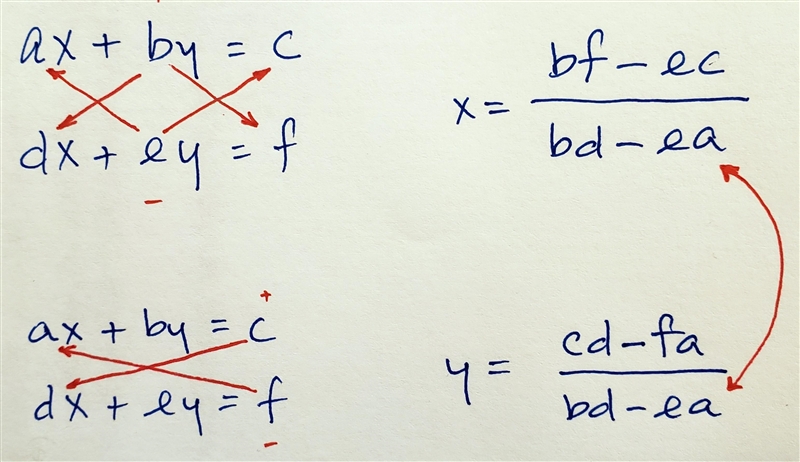 ax + by = c
dx + ey = f
-
x = bf - ec / bd - ea
+
ax + by = c
dx + ey = f
-
y = cd - fa / bd - ea